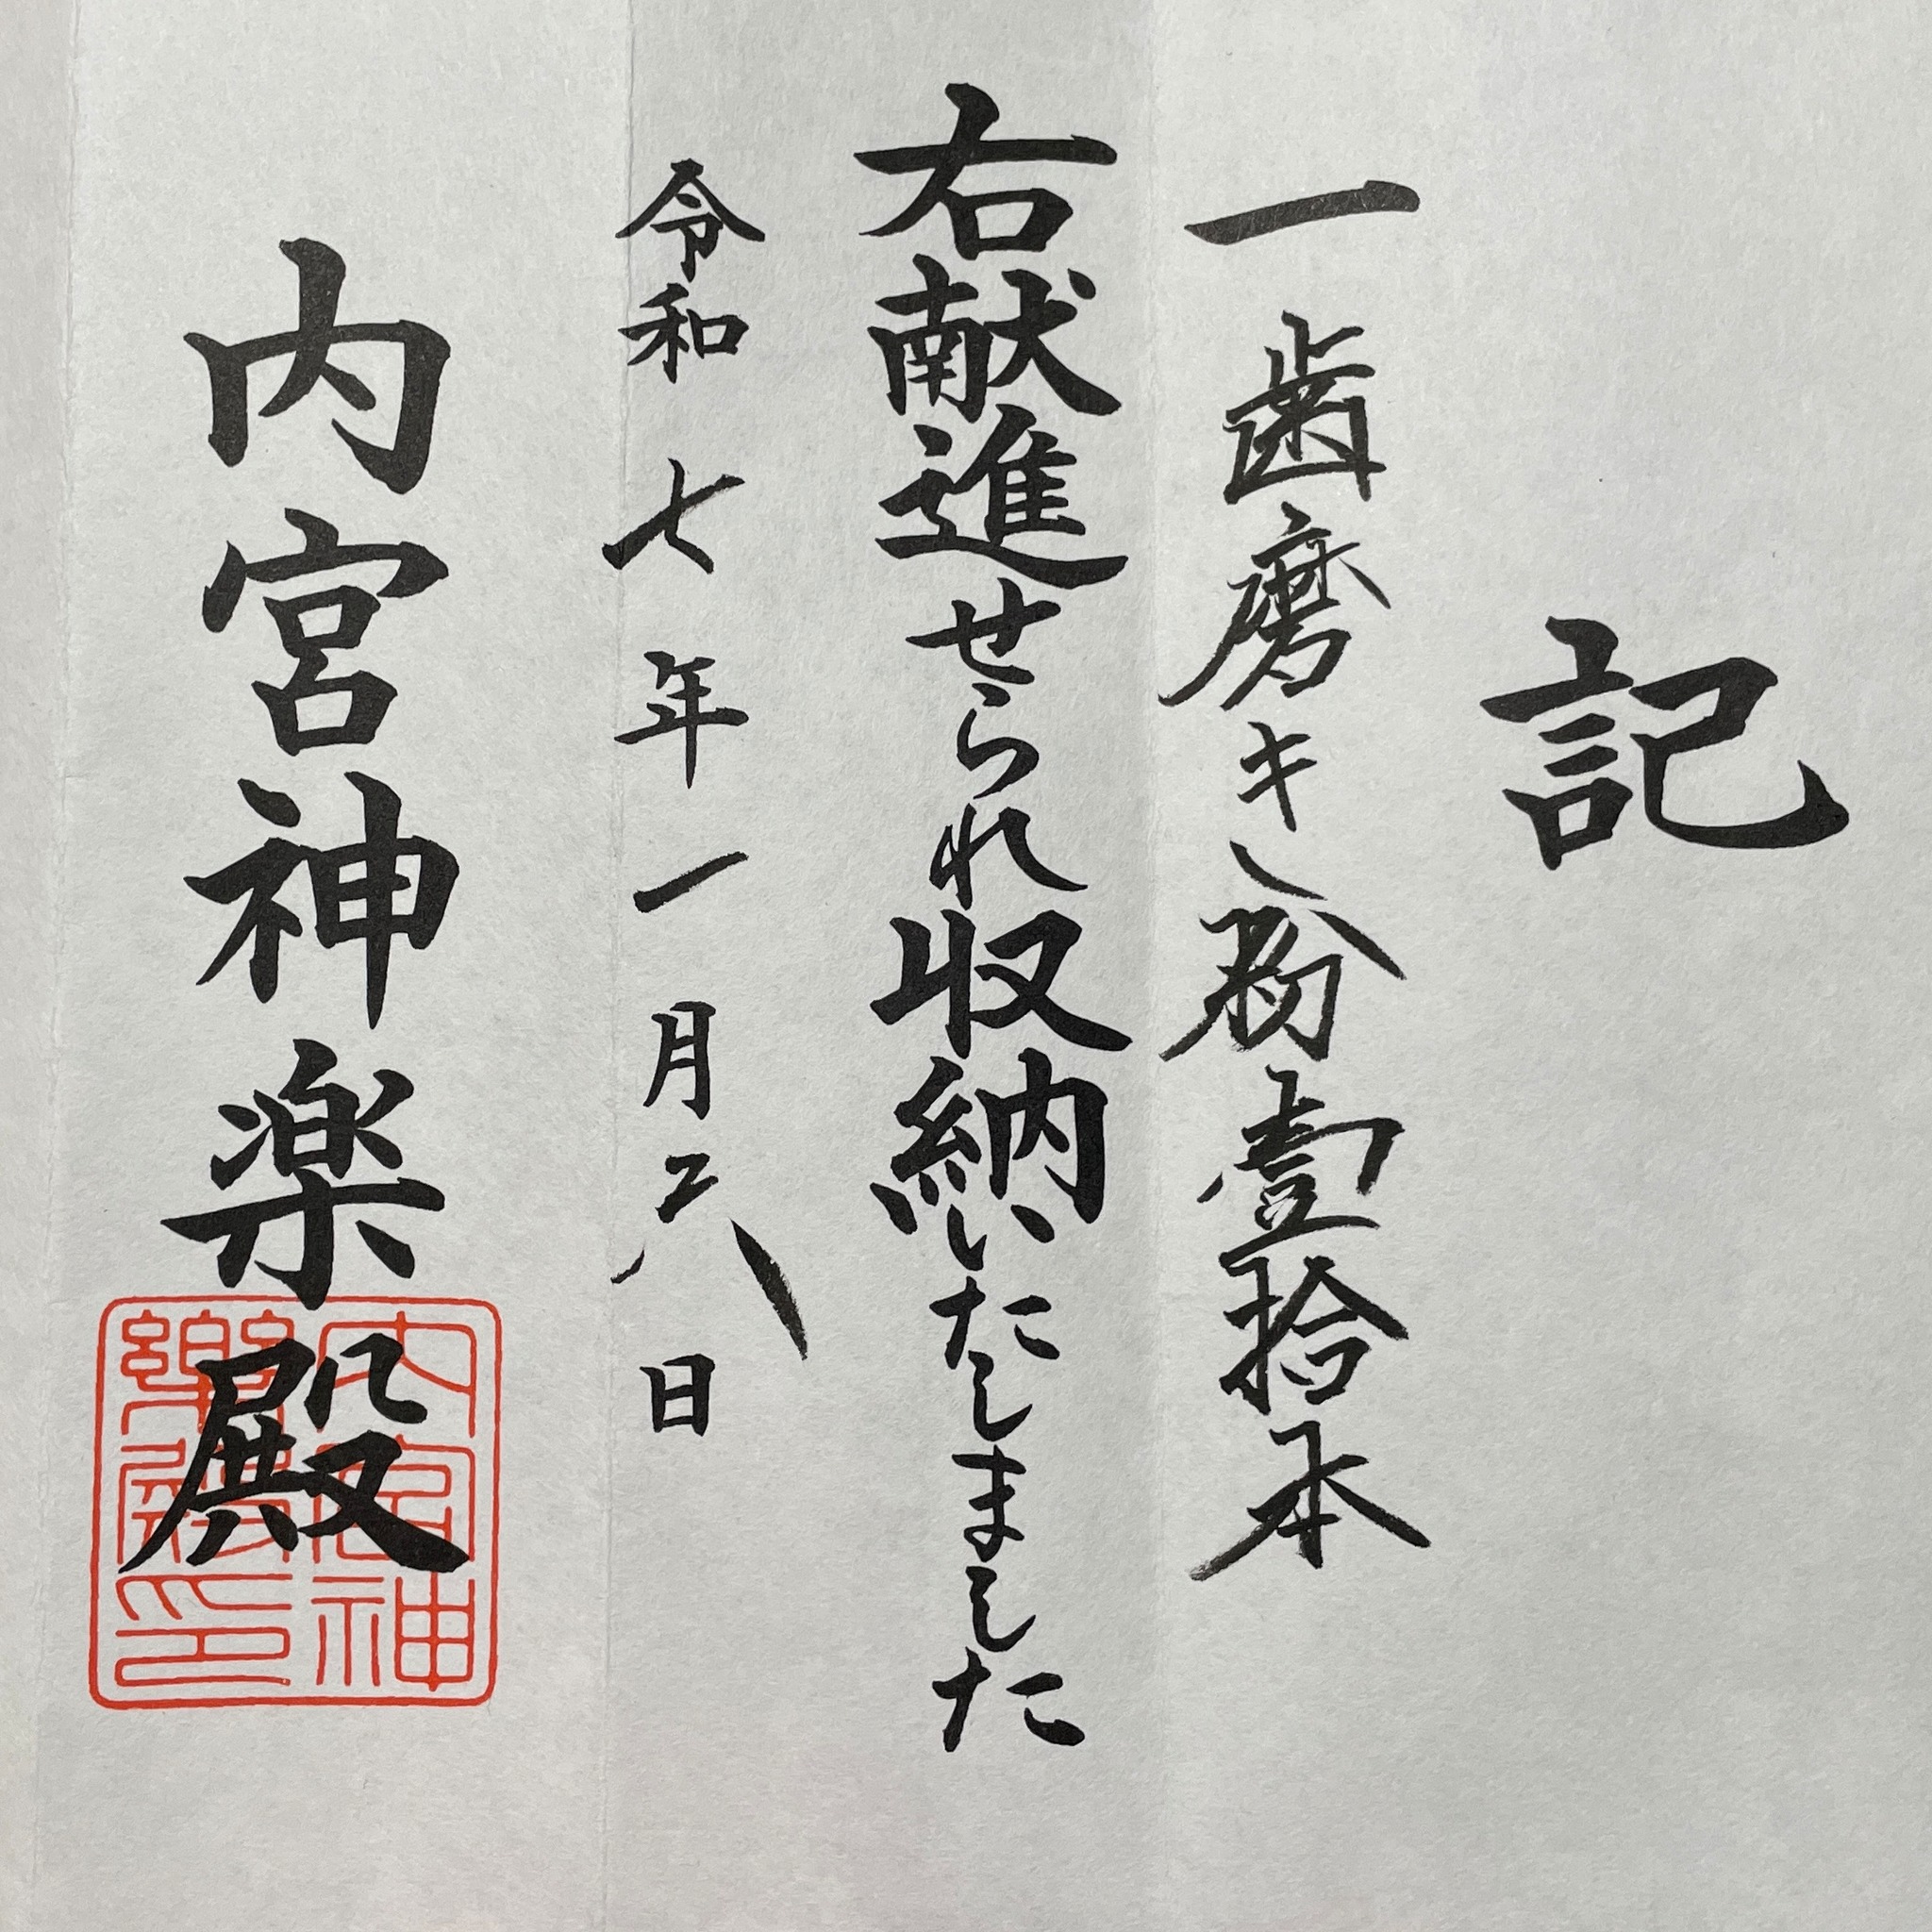 記
一 歯磨キ粉壹拾本
右献進せられ収納いたしました
令和七年一月二八日
内宮神楽殿
内宮神
楽殿印